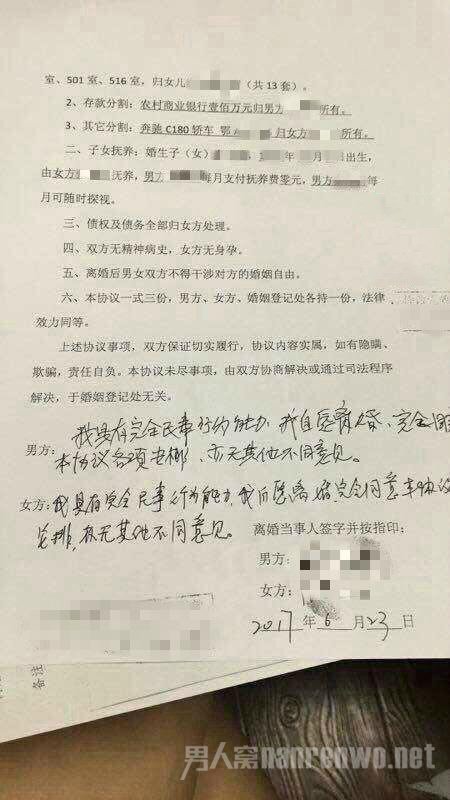 室、501 室、516 室，归女儿（共 13 套）。
2、存款分割：农村商业银行壹佰万元归男方所有。
3、其它分割：奔驰 C180 轿车 鄂 归女方所有。
二、子女抚养：婚生子（女） 年 月 日出生，
由女方抚养，男方每月支付抚养费零元，男方每
月可随时探视。
三、债权及债务全部归女方处理。
四、双方无精神病史，女方无身孕。
五、离婚后男女双方不得干涉对方的婚姻自由。
六、本协议一式三份，男方、女方、婚姻登记处各持一份，法律
效力同等。
上述协议事项，双方保证切实履行，协议内容实属，如有隐瞒、
欺骗，责任自负。本协议未尽事项，由双方协商解决或通过司法程序
解决，于婚姻登记处无关。
我具有完全民事行为能力，我自愿离婚、完全同
男方：本协议各项安排，亦无其他不同意见。
女方：我具有完全民事行为能力，我自愿离婚完全同意本协议
安排，亦无其他不同意见。
离婚当事人签字并按指印：
男方：
女方：
2017 年 6 月 23 日
备注
男人窝nanrenwo.net